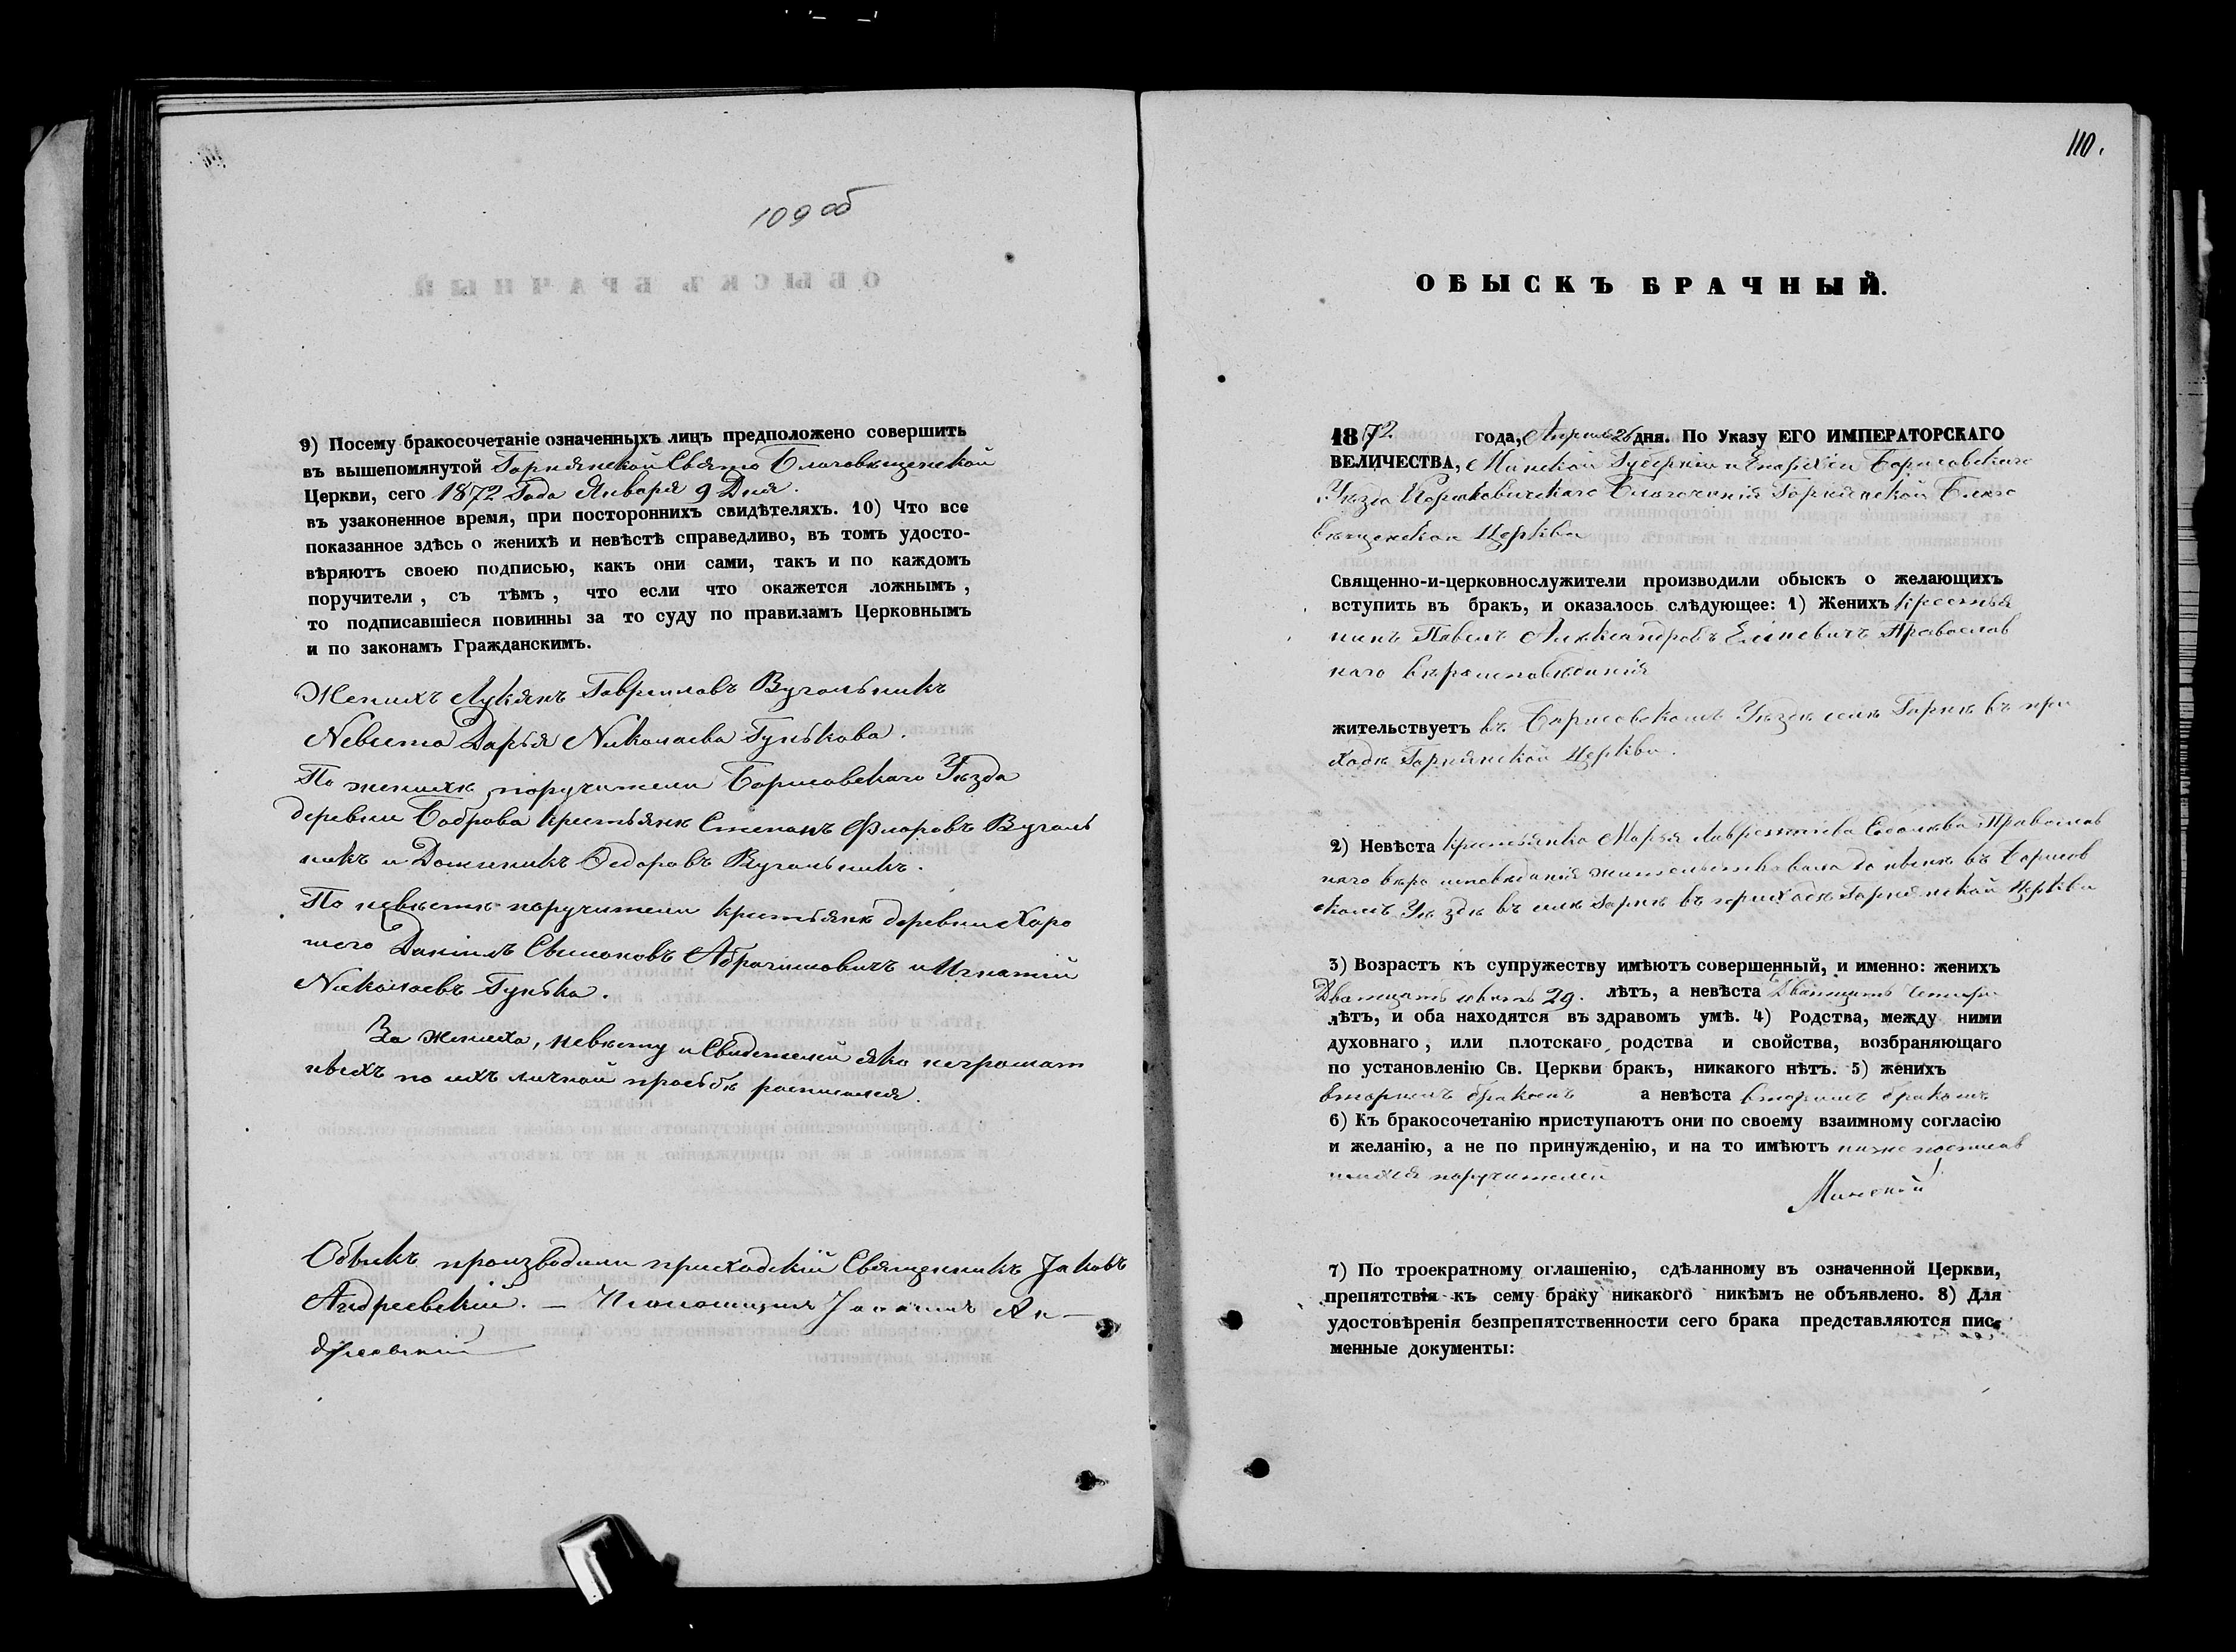 109 об
9) Посему бракосочетаніе означенныхъ лицъ предположено совершить
въ вышепомянутой Горнянской Свято Благовѣщенской
Церкви, сего 1872 Года Января 9 Дня.
въ узаконенное время, при постороннихъ свидѣтеляхъ. 10) Что все
показанное здѣсь о женихѣ и невѣстѣ справедливо, въ томъ удосто-
вѣряютъ своею подписью, какъ они сами, такъ и по каждомъ
поручители, съ тѣмъ, что если что окажется ложнымъ,
то подписавшіеся повинны за то суду по правиламъ Церковнымъ
и по законамъ Гражданскимъ.
Женихъ Лукянъ Гаврилавъ Вугольникъ
Невѣста Дарья Николаева Гунькова.
По женихѣ поручители Борисовскаго Уѣзда
деревни Боброва крестьянѣ Степанъ Флоровъ Вуголь
никъ и Доминикъ Федоровъ Вугольникъ.
По невѣстѣ поручители крестьянѣ деревни Харо
шего Даніилъ Симоновъ Абрагимовичъ и Игнатій
Николаевъ Гунька.
За жениха, невѣсту и Свидетелей яко неграмат
ныхъ по ихъ личной просьбѣ росписался.
Обыскъ производили приходскій Священникъ Іаковъ
Андреевскій. — Ан—
дреевскій
110.
ОБЫСКЪ БРАЧНЫЙ.
1872 года, Апреля 26 дня. По Указу ЕГО ИМПЕРАТОРСКАГО
ВЕЛИЧЕСТВА, Минской Губерніи и Епархіи Борисовскаго
Уѣзда Благочинія Горнянской Благо
вѣщенской Церкви
Священно-и-церковнослужители производили обыскъ о желающихъ
вступить въ бракъ, и оказалось слѣдующее: 1) Женихъ крестья
нинъ Павелъ Александровъ Православ
наго вѣроисповѣданія
жительствуетъ въ Борисовскомъ Уѣздѣ селѣ Горнѣ въ при
ходѣ Горнянской Церкви.
2) Невѣста крестьянка Марья Лаврентіева Православ
наго вѣроисповѣданія жительствовала до нынѣ въ Борисов
скомъ Уѣздѣ въ селѣ Горнѣ въ приходѣ Горнянской Церкви
3) Возрастъ къ супружеству имѣютъ совершенный, и именно: женихъ
29. лѣтъ, а невѣста Дватцать четыри
лѣтъ, и оба находятся въ здравомъ умѣ. 4) Родства, между ними
духовнаго, или плотскаго родства и свойства, возбраняющаго
по установленію Св. Церкви бракъ, никакого нѣтъ. 5) женихъ
вторимъ бракомъ а невѣста вторимъ бракомъ
6) Къ бракосочетанію приступаютъ они по своему взаимному согласію
и желанію, а не по принужденію, и на то имѣютъ нижеподписав
шихся поручителей
7) По троекратному оглашенію, сдѣланному въ означенной Церкви,
препятствія къ сему браку никакого никѣмъ не объявлено. 8) Для
удостовѣренія безпрепятственности сего брака представляются пис
менные документы: